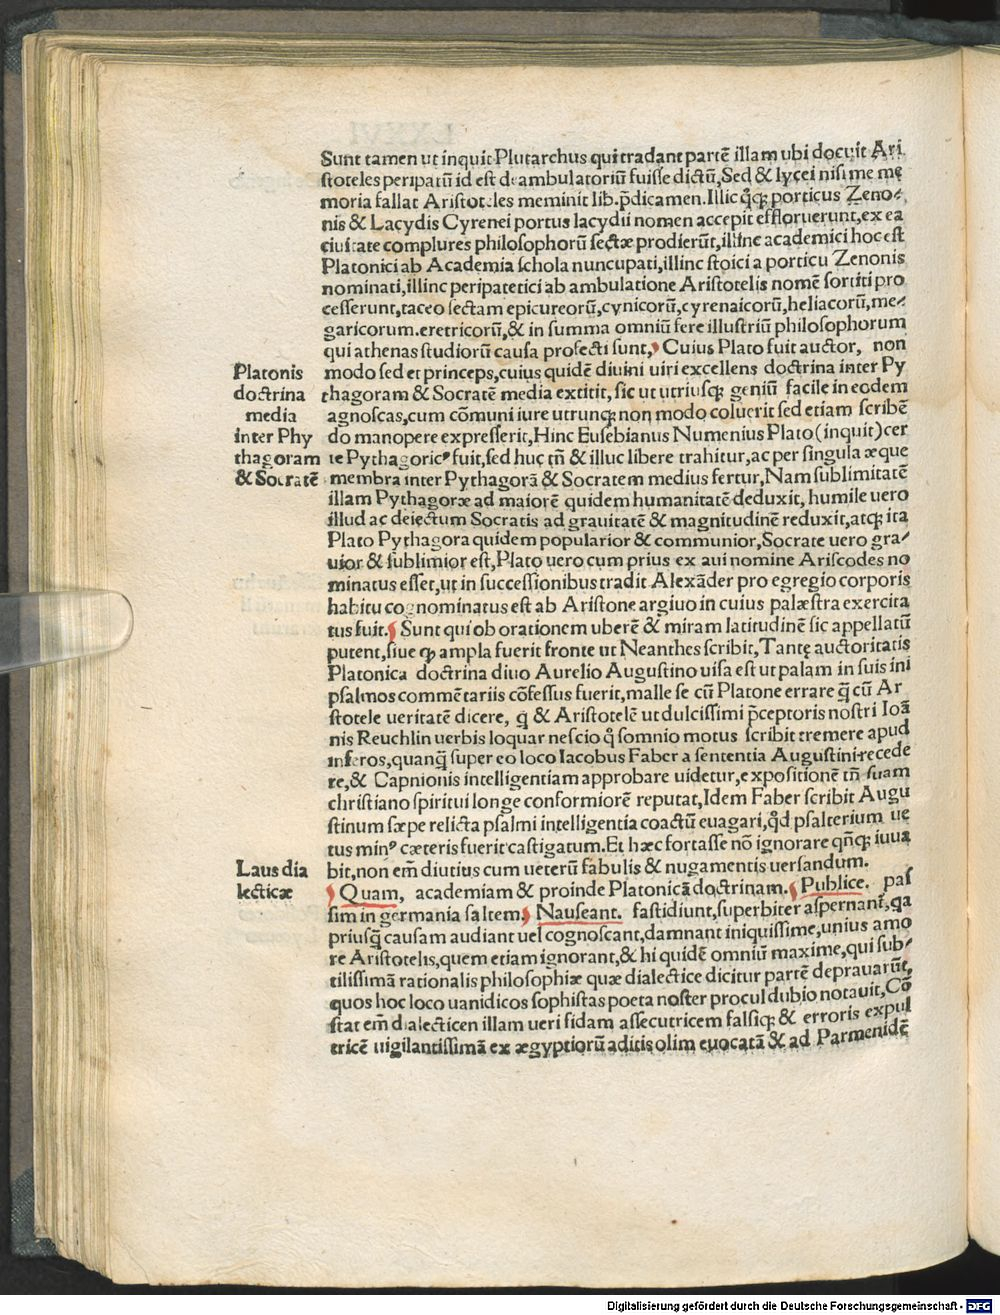 Sunt tamen ut inquit Plutarchus qui tradant partē illam ubi docuit Ari
stoteles peripatū id est deambulatoriū fuisse dictū, Sed & lycei nisi me mę
moria fallat Aristoteles meminit lib. p̄dicamen. Illic q̊q; porticus Zeno⸗
nis & Lacydis Cyrenei portus lacydii nomen accepit effloruerunt, ex ea
ciuitate complures philosophorū sectæ prodierūt, illinc academici hoc est
Platonici ab Academia schola nuncupati, illinc stoici a porticu Zenonis
nominati, illinc peripatetici ab ambulatione Aristotelis nomē sortiti pro
cesserunt, taceo sectam epicureorū, cynicorū, cyrenaicorū, heliacorū, me⸗
garicorum. eretricorū, & in summa omniū fere illustriū philosophorum
qui athenas studiorū causa profecti sunt, Cuius Plato fuit auctor, non
modo sed et princeps, cuius quidē diuini uiri excellens doctrina inter Py
thagoram & Socratē media extitit, sic ut utriusq; geniū facile in eodem
agnoscas, cum cōmuni iure utrunq; non modo coluerit sed etiam scribē
do manopere expresserit, Hinc Eusebianus Numenius Plato (inquit) cer
te Pythagoricꝰ fuit, sed huc tn̄ & illuc libere trahitur, ac per singula æque
membra inter Pythagorā & Socratem medius fertur, Nam sublimitatē
illam Pythagoræ ad maiorē quidem humanitatē deduxit, humile uero
illud ac deiectum Socratis ad grauitatē & magnitudinē reduxit, atq; ita
Plato Pythagora quidem popularior & communior, Socrate uero gra⸗
uior & sublimior est, Plato uero cum prius ex aui nomine Ariscodes no
minatus esset, ut in successionibus tradit Alexāder pro egregio corporis
habitu cognominatus est ab Aristone argiuo in cuius palæstra exercita
tus fuit. Sunt qui ob orationem uberē & miram latitudinē sic appellatū
putent, siue ꝙ ampla fuerit fronte ut Neanthes scribit, Tantę auctoritatis
Platonica doctrina diuo Aurelio Augustino uisa est ut palam in suis in i
psalmos commētariis cōfessus fuerit, malle se cū Platone errare q̄ cū Ar
stotele ueritatē dicere, q̄ & Aristotelē ut dulcissimi p̄ceptoris nostri Ioā
nis Reuchlin uerbis loquar nescio q̊ somnio motus scribit tremere apud
inferos, quanq̄ super eo loco Iacobus Faber a sententia Augustini recede
re, & Capnionis intelligentiam approbare uidetur, expositionē tn̄ suam
christiano spiritui longe conformiorē reputat, Idem Faber scribit Augu
stinum sæpe relicta psalmi intelligentia coactū euagari, q̊d psalterium ue
tus minꝰ cæteris fuerit castigatum. Et hæc fortasse nō ignorare qn̄q; iuua
bit, non em̄ diutius cum ueterū fabulis & nugamentis uersandum.
Quam, academiam & proinde Platonicā doctrinam. Publice. pas
sim in germania saltem. Nauseant. fastidiunt, superbiter aspernant᷑, qa
priusq̄ causam audiant uel cognoscant, damnant iniquissime, unius amo
re Aristotelis, quem etiam ignorant, & hi quidē omniū maxime, qui sub⸗
tilissimā rationalis philosophiæ quæ dialectice dicitur partē deprauarūt,
quos hoc loco uanidicos sophistas poeta noster procul dubio notauit, Cō
stat em̄ dialecticen illam ueri fidam assecutricem falsiq; & erroris expul
tricē uigilantissimā ex ægyptiorū aditis olim euocatā & ad Parmenidē
Platonis
doctrina
media
inter Phy
thagoram
& Socratē
Laus dia
lecticæ
Digitalisierung gefördert durch die Deutsche Forschungsgemeinschaft - DFG